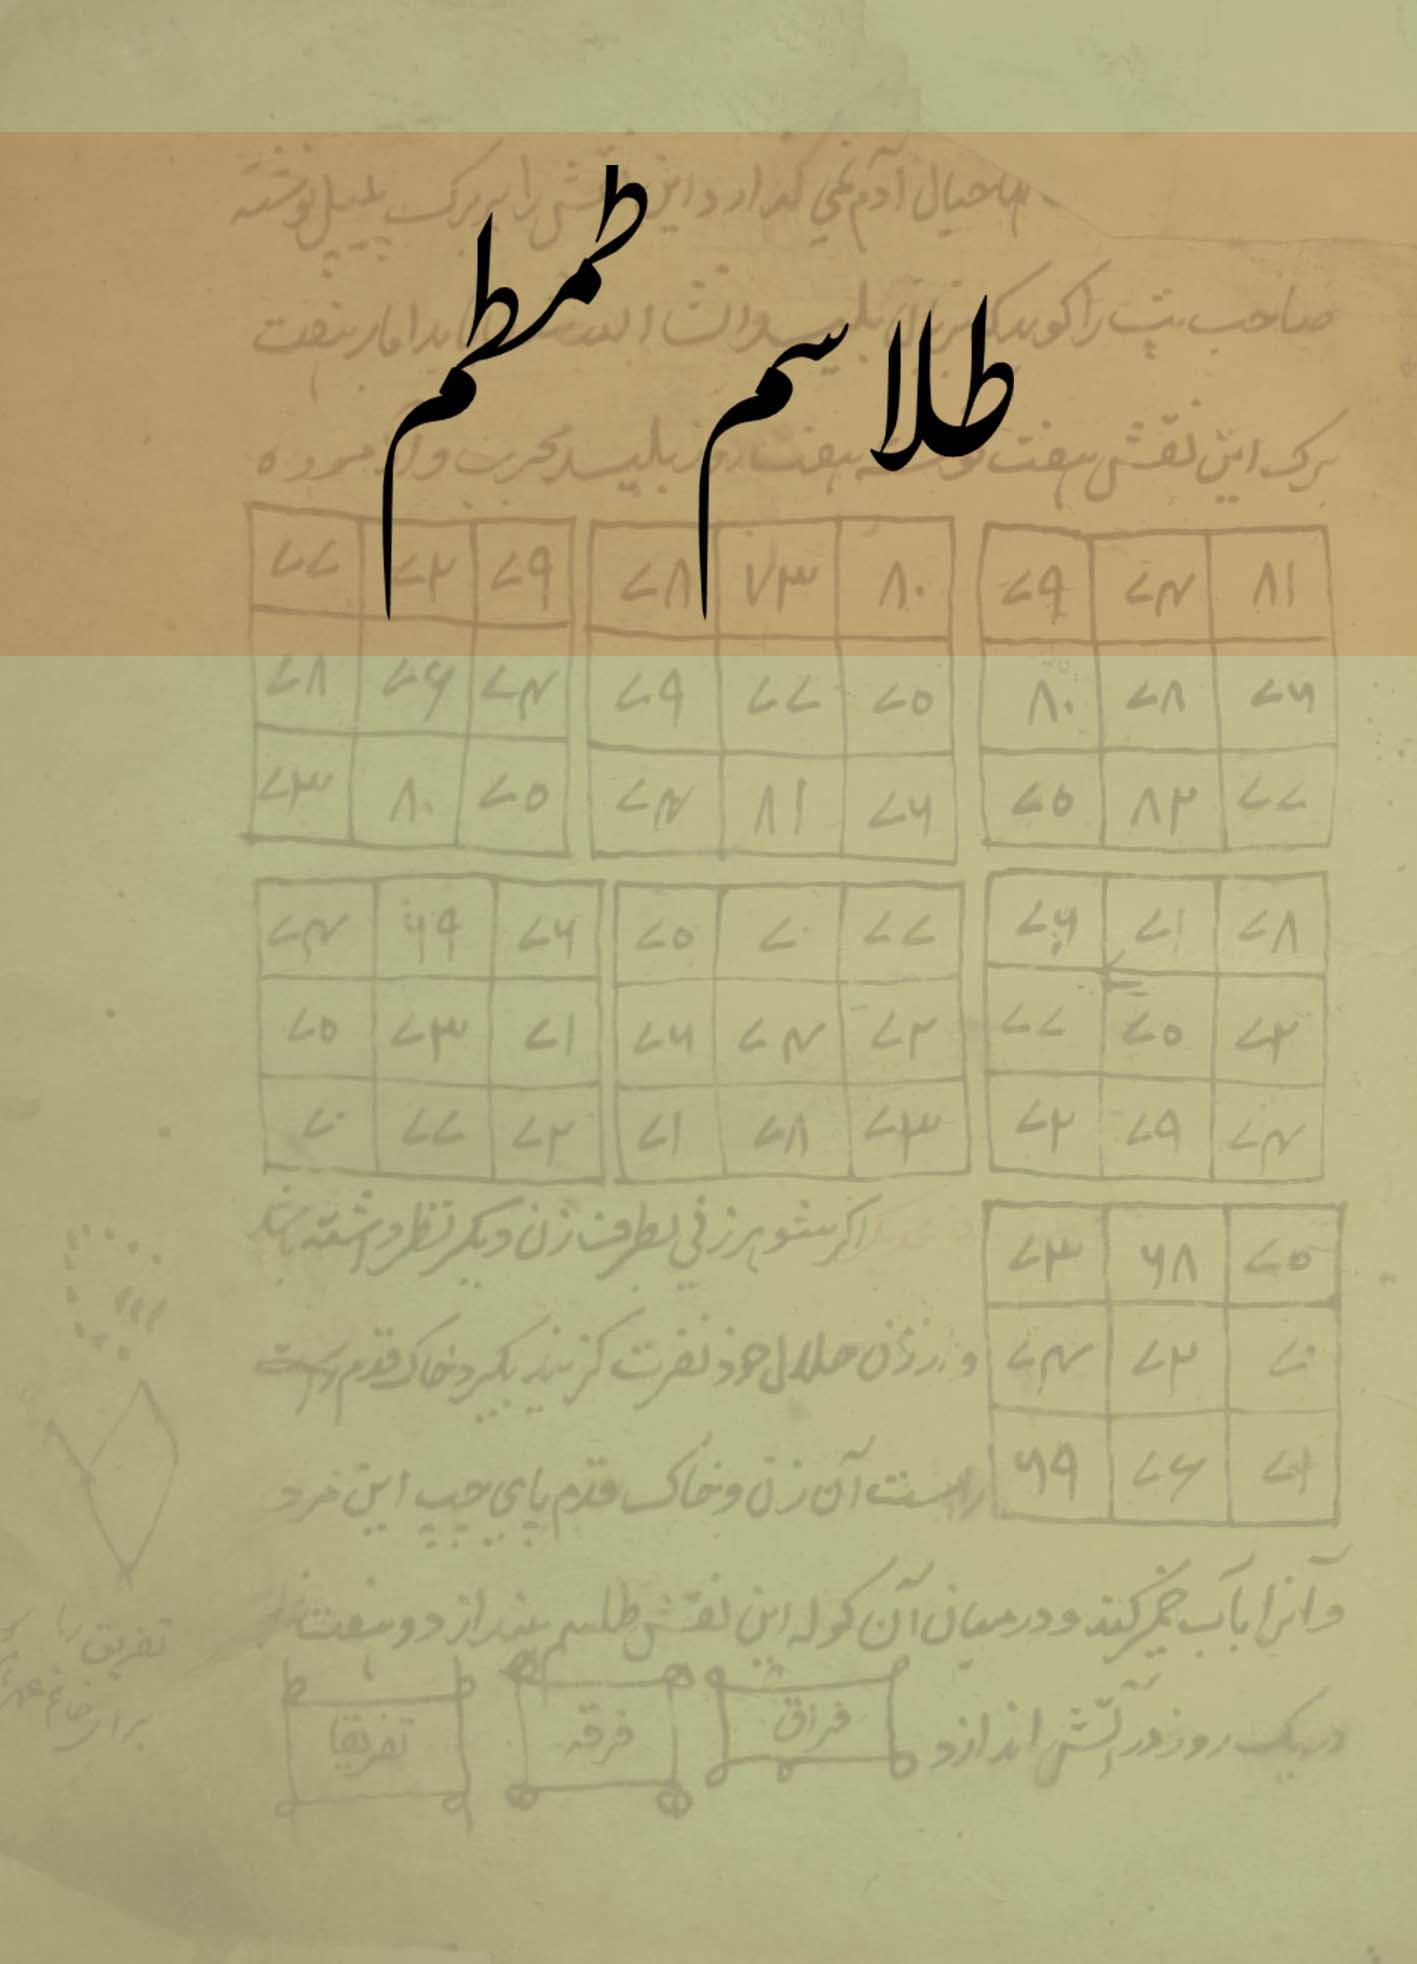 طلاسم طمطم
صاحبال آدم نمی گذارد این نقش را بر برگ پیپل نوشته
صاحب تپ را گوید که
برگ این نقش هفت هفت روز بلیسد مجرب
۷۷ ۷۲ ۷۹ ۷۸ ۷۳ ۸۰ ۷۹ ۷۴ ۸۱
۷۸ ۷۶ ۷۴ ۷۹ ۷۷ ۷۵ ۸۰ ۷۸ ۷۶
۷۳ ۸۰ ۷۵ ۷۴ ۸۱ ۷۶ ۷۵ ۸۲ ۷۷
۷۴ ۶۹ ۷۶ ۷۵ ۷۰ ۷۷ ۷۶ ۷۱ ۷۸
۷۵ ۷۳ ۷۱ ۷۶ ۷۴ ۷۲ ۷۷ ۷۵ ۷۳
۷۰ ۷۷ ۷۲ ۷۱ ۷۸ ۷۳ ۷۲ ۷۹ ۷۴
۷۳ ۶۸ ۷۵
۷۴ ۷۲ ۷۰
۶۹ ۷۶ ۷۱
اگر شوهر زنی بطرف زن دیگر نظر داشته باشد
و از زن حلال خود نفرت گزیند بگیرد خاک قدم
راست آن زن و خاک قدم پای چپ این مرد
و آنرا باب خمیر کند و در میان آن گوله این نقش طلسم بیندازد و هفت
در یک روز در آتش اندازد
فراق
فرقه
تفریقا
تفریق
برای